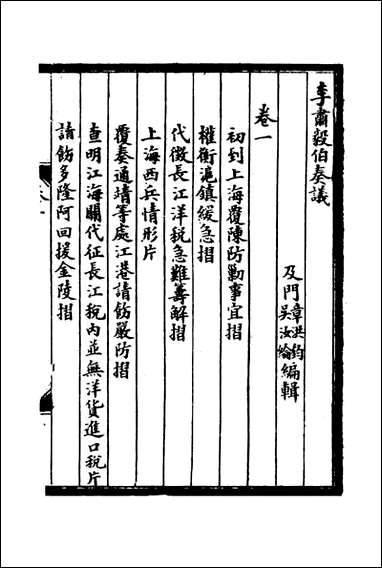 李肅毅伯奏議
及門章洪鈞吳汝綸編輯
卷一
初到上海覆陳防勦事宜摺
權衡滬鎮緩急摺
代徵長江洋稅急難籌解摺
上海西兵情形片
覆奏通靖等處江港請飭嚴防摺
查明江海關代征長江稅內並無洋貨進口稅片
請飭多隆阿回援金陵摺